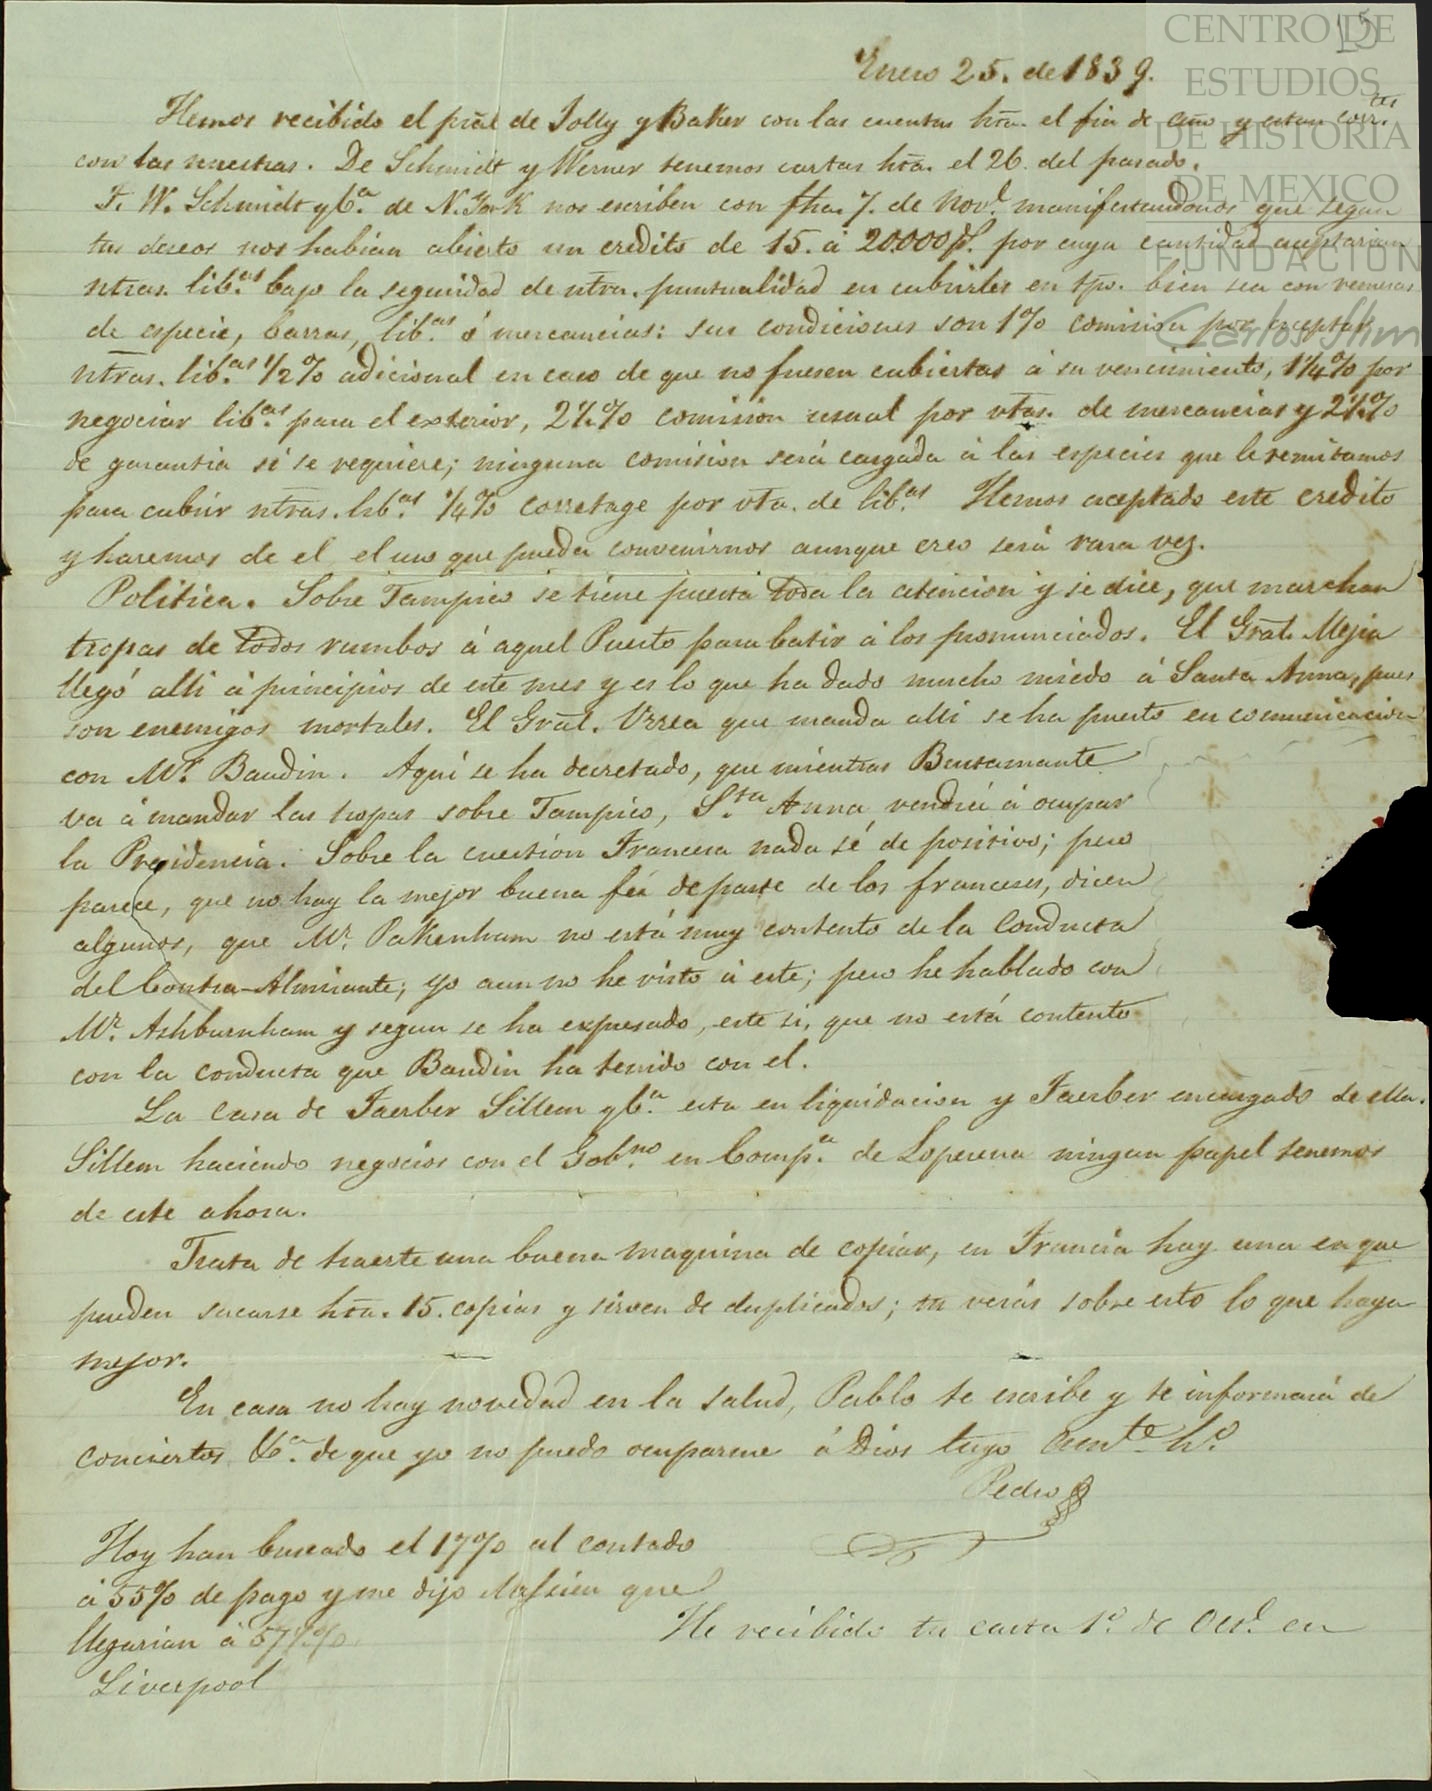 CENTRO DE
ESTUDIOS
DE HISTORIA
DE MEXICO
FUNDACION
Carlos Slim
15
Enero 25. de 1839.
Hemos recibido el pral de Jolly y Baker con las cuentas hta. el fin de año y estan corr.tes
con las nuestras. De Schmidt y Werner tenemos cartas hta. el 26 del pasado.
F. W. Schmidt y Ca. de N. York nos escriben con fha. 7. de Nove. manifestandonos que segun
tus deseos nos habian abierto un credito de 15. á 20000 ps. por cuya cantidad aceptarian
ntras. lib.as bajo la seguridad de ntra. puntualidad en cubrirles en tpo. bien sea con remesas
de especie, barras, lib.as ó mercancias: sus condiciones son 1% comision por aceptar
ntras. lib.as 1/2% adicional en caso de que no fuesen cubiertas á su vencimiento, 1 1/4% por
negociar lib.as para el exterior, 2 1/2% comision usual por vtas. de mercancias y 2 1/2%
de garantia si se requiere; ninguna comision será cargada á las especies que le remitamos
para cubrir ntras. lib.as 1/4% corretage por vta. de lib.as Hemos aceptado este credito
y haremos de el el uso que pueda convenirnos aunque creo será rara vez.
Politica. Sobre Tampico se tiene puesta toda la atencion y se dice, que marchan
tropas de todos rumbos á aquel Puerto para batir á los pronunciados. El Gral. Mejia
llegó alli á principios de este mes y es lo que ha dado mucho miedo á Santa Anna, pues
son enemigos mortales. El Gral. Urrea que manda alli se ha puesto en comunicacion
con Mr. Baudin. Aqui se ha decretado, que mientras Bustamante
va á mandar las tropas sobre Tampico, S.ta Anna vendrá á ocupar
la Presidencia. Sobre la cuestion Francesa nada sé de positivo; pero
parece, que no hay la mejor buena feé de parte de los franceses, dicen
algunos, que Mr. Pakenham no está muy contento de la conducta
del Contra-Almirante; yo aun no he visto á este; pero he hablado con
Mr. Ashburnham y segun se ha expresado, este si, que no está contento
con la conducta que Baudin ha tenido con el.
La casa de Faerber Sillem y Ca. esta en liquidacion y Faerber encargado de ella.
Sillem haciendo negocios con el Gob.no en Comp.a de Loperena ningun papel tenemos
de este ahora.
Trata de traerte una buena maquina de copiar, en Francia hay una en que
pueden sacarse hta. 15. copias y sirven de duplicados; tu verás sobre esto lo que haya
mejor.
En casa no hay novedad en la salud, Pablo te escribe y te informará de
conciertos &a. de que yo no puedo ocuparme á Dios tuyo amte. ho.
Pedro
Hoy han buscado el 17% al contado
á 55% de pago y me dijo que
llegarian á 57 1/2%
He recibido tu carta 1o. de Oce. en
Liverpool